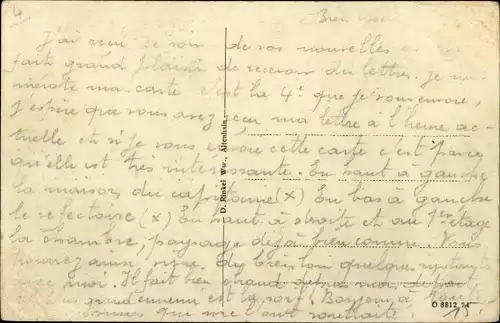 4
Bien
J'ai reçu ce soir de vos nouvelles
fait grand plaisir de recevoir des lettres. Je nu-
mérote ma carte c'est la 4e que je vous envoie,
j'espère que vous avez reçu ma lettre à l'heure ac-
tuelle et si je vous envoie cette carte c'est parce
qu'elle est très intéressante. En haut à gauche
la maison du capitaine (X) En bas à gauche
le refectoire (X) En haut à droite et au 1er étage
la chambre, paysage déjà bien connu. Vous
pourrez ainsi vivre de bien loin quelques instants
avec moi. Il fait bien chaud
grand ennemi est la soif. Bonjour à
que me l'ont souhaité
D. Rinkel Ww., Altenhein.
O 8812 74
15